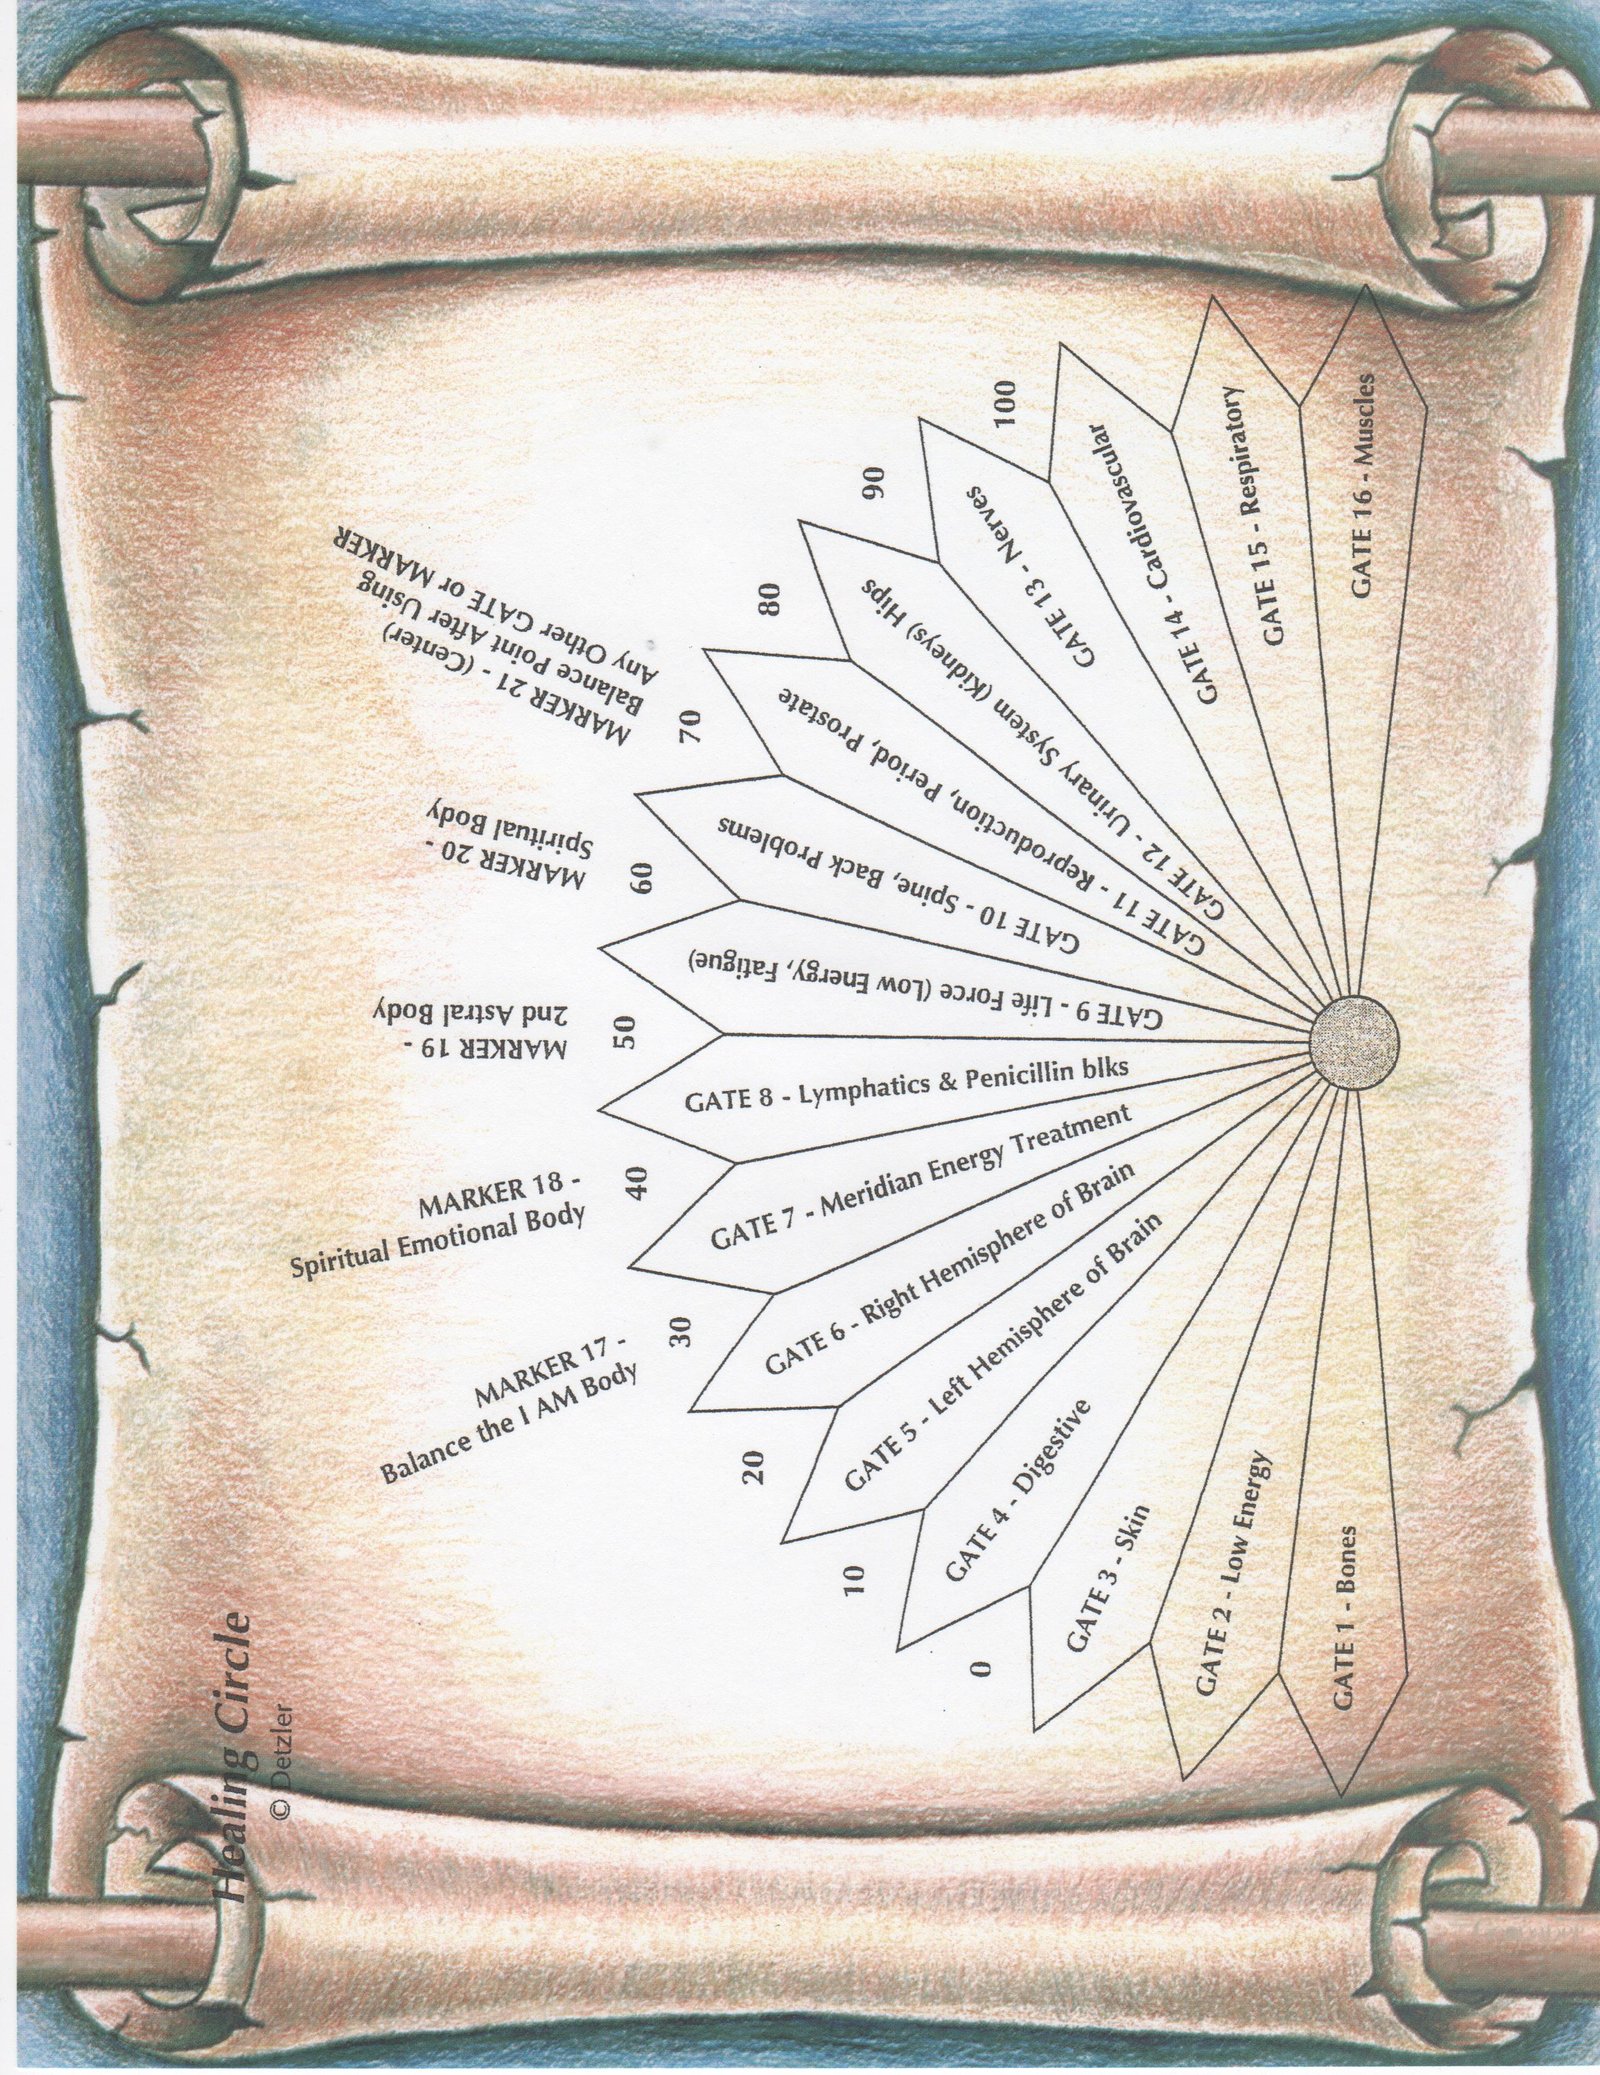 Healing Circle
© Detzler
MARKER 17 -
Balance the I AM Body
MARKER 18 -
Spiritual Emotional Body
MARKER 19 -
2nd Astral Body
MARKER 20 -
Spiritual Body
MARKER 21 - (Center)
Balance Point After Using
Any Other GATE or MARKER
0
10
20
30
40
50
60
70
80
90
100
GATE 1 - Bones
GATE 2 - Low Energy
GATE 3 - Skin
GATE 4 - Digestive
GATE 5 - Left Hemisphere of Brain
GATE 6 - Right Hemisphere of Brain
GATE 7 - Meridian Energy Treatment
GATE 8 - Lymphatics & Penicillin blks
GATE 9 - Life Force (Low Energy, Fatigue)
GATE 10 - Spine, Back Problems
GATE 11 - Reproduction, Period, Prostate
GATE 12 - Urinary System (Kidneys) Hips
GATE 13 - Nerves
GATE 14 - Cardiovascular
GATE 15 - Respiratory
GATE 16 - Muscles